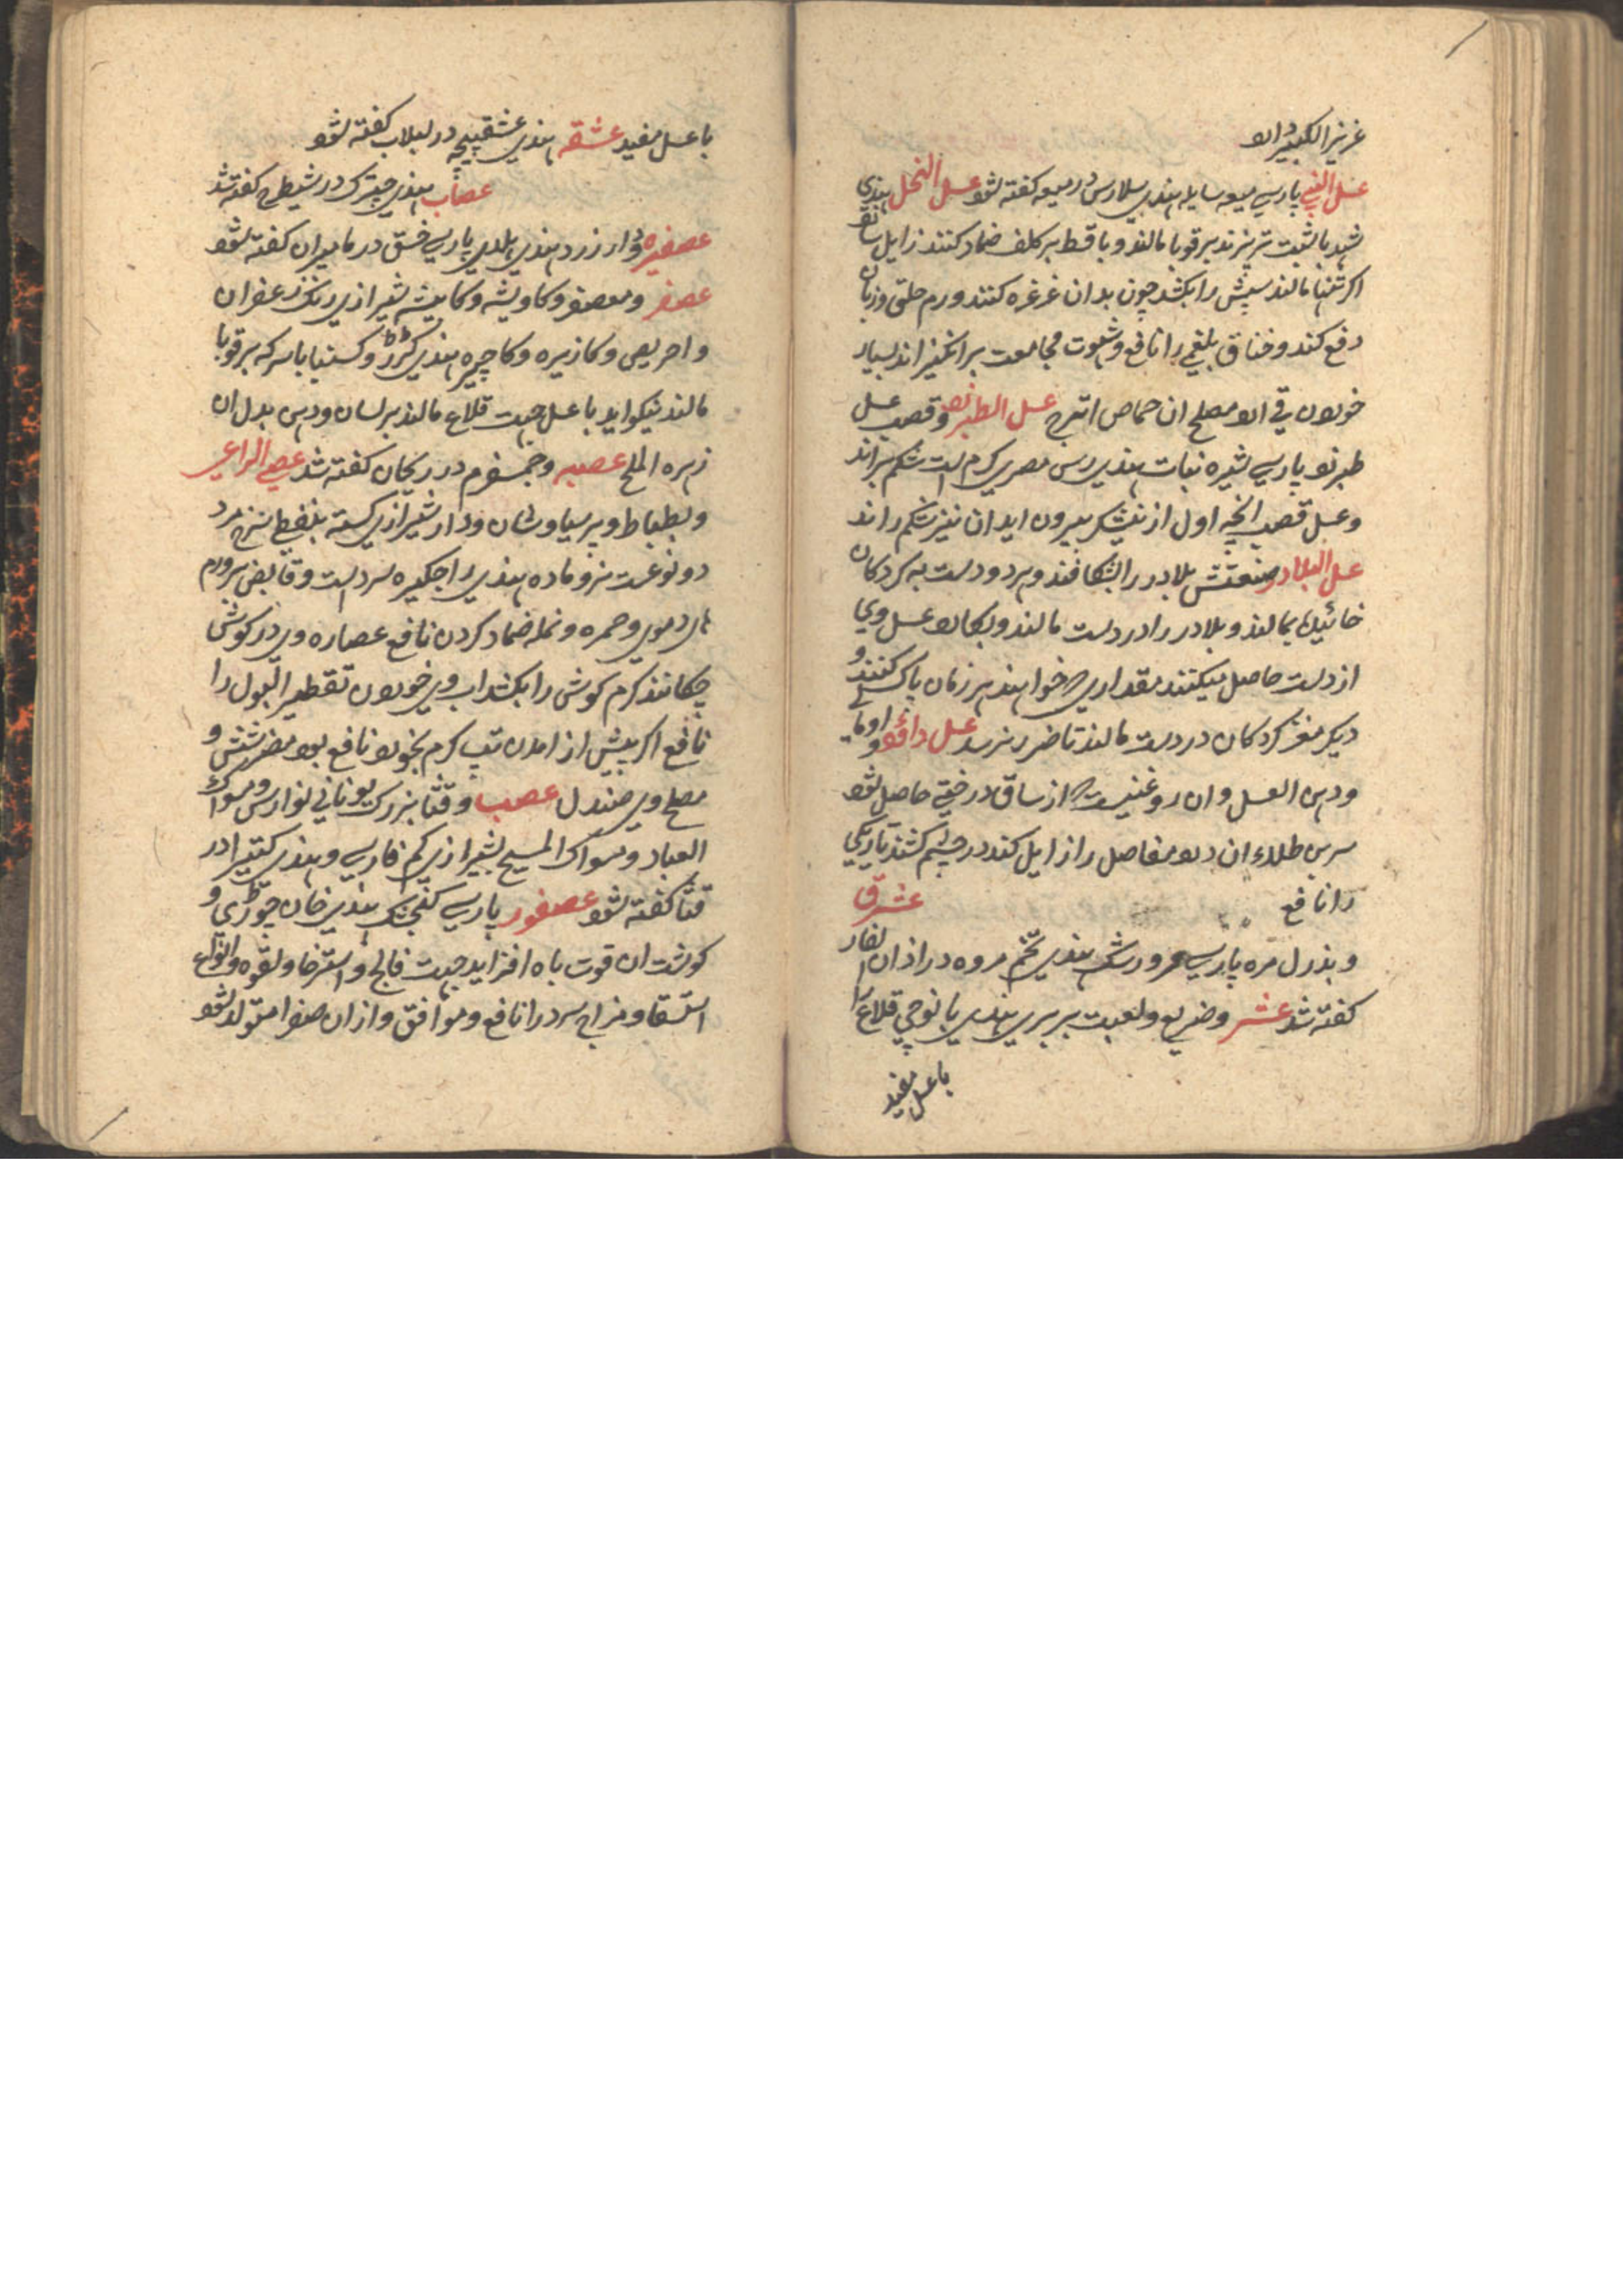 عزیز الکبیر داںد
عسل اللبنی پارسی میعه سایله هندی سلارس در میعه کفته شود عسل النحل هندی
شهد با شبت تر پزند بر قوبا مالند و با قسط بر کلف ضماد کنند زایل شود
اکر تنها مالند سپش را بکشد چون بدان غرغره کنند ورم حلق و زبان
دفع کند و خناق بلغمی را نافع و شهوت مجامعت برانکیزاند بسیار
خوردن قی ارد مصلح ان حماض اترج عسل الطبرزد و قصب عسل
طبرزد پارسی شیره نبات هندی رس مصری کرم است شکم براند
و عسل قصب انچه اول از نیشکر بیرون اید ان نیز شکم راند
عسل البلادر صنعتش بلادر را بشکافند و هر دو دست به کردکان
خائیده بمالند و بلادر را در دست مالند و بکارد عسل وی
از دست حاصل میکنند مقداری که خواهند هر زمان پاک کنند و
دیکر مغز کردکان در دست مالند تا ضرر نرسد عسل داؤد و اومالی
و دهن العسل و ان روغنیست که از ساق درختی حاصل شود
سرین طلاء ان درد مفاصل را زایل کند در چشم کشند تاریکی
را نافع عشرق
و بذر ل مره پارسی مرورشک هندی تخم مروه در اذان الفار
کفته شد عشر و ضریع و لعبت بربری هندی یا نوچی قلاع را
با عسل مفید
با عسل مفید عشقه هندی عشقپیچه در لبلاب کفته شود
عصاب هندی چترک در شیطرج کفته شد
عصفیره و دار زرد هندی هلدی پارسی خسق در مامیران کفته شود
عصفر و معصفر و کاویشه و کابیشه شیرازی رنک زعفران
و احریض و کازیره و کاچیره هندی کرر و کسنبا با سرکه بر قوبا
مالند نیکو اید با عسل جهت قلاع مالند بر لسان و دهن بدل ان
زهره الملح عصبه و جمسفرم در ریحان کفته شد عصی الراعی
و بطباط و پرسیاوشان و دار شیرازی کسته بلفظ سرخ مرد
دو نوعست نر و ماده هندی راجکیره سرد است و قابض بر ورم
های دموی و حمره و نمله ضماد کردن نافع عصاره وی در کوش
چکانند کرم کوش را بکشد اب وی خوردن تقطیر البول را
نافع اکر پیش از امدن تپ کرم بخورد نافع بود مضر شش و
مصلح وی صندل عصب و قثا بزرک یونانی لوارس و مسواک
العباد و مسواک المسیح بشیرازی کم فارسی و هندی کتیرا در
قثا کفته شود عصفور پارسی کنجشک هندی خان چوڑی و
کوشت ان قوت باه افزاید جهت فالج و استرخا و لقوه و انواع
استسقا و مزاج سرد را نافع و موافق و ازان صفرا متولد شود